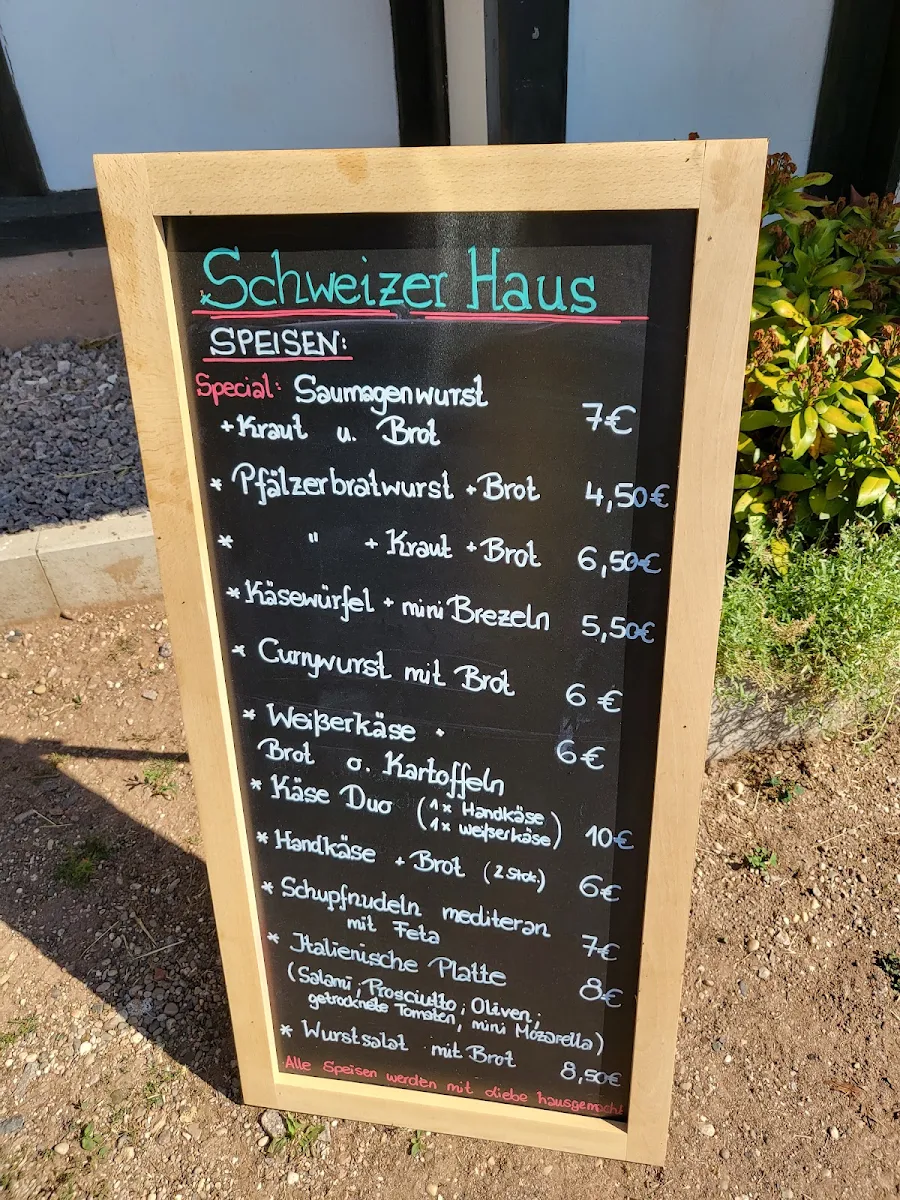 Schweizer Haus
SPEISEN:
Special: Saumagenwurst
+ Kraut u. Brot 7€
* Pfälzerbratwurst + Brot 4,50€
* " + Kraut + Brot 6,50€
* Käsewürfel + mini Brezeln 5,50€
* Currywurst mit Brot 6 €
* Weißerkäse +
Brot o. Kartoffeln 6€
* Käse Duo (1x Handkäse
1x weißerkäse) 10€
* Handkäse + Brot (2 Stck.) 6€
* Schupfnudeln mediteran
mit Feta 7€
* Italienische Platte 8€
(Salami; Prosciutto; Oliven;
getrocknete Tomaten, mini Mozarella)
* Wurstsalat mit Brot 8,50€
Alle Speisen werden mit Liebe hausgemacht